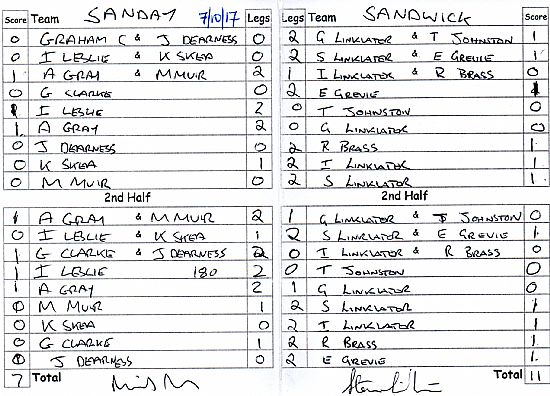 Score Team SANDAY 7/10/17 Legs Legs Team SANDWICK Score
0 GRAHAM C & J DEARNESS 0 2 G LINKLATER & T JOHNSTON 1
0 I LESLIE & K SKEA 0 2 S LINKLATER & E GREVIE 1
1 A GRAY & M MUIR 2 1 I LINKLATER & R BRASS 0
0 G CLARKE 0 2 E GREVIE 1
1 I LESLIE 2 0 T JOHNSTON 0
1 A GRAY 2 0 G LINKLATER 0
0 J DEARNESS 0 2 R BRASS 1
0 K SKEA 1 2 I LINKLATER 1
0 M MUIR 0 2 S LINKLATER 1
2nd Half 2nd Half
1 A GRAY & M MUIR 2 1 G LINKLATER & JOHNSTON 0
0 I LESLIE & K SKEA 1 2 S LINKLATER & E GREVIE 1
1 G CLARKE & J DEARNESS 2 0 I LINKLATER & R BRASS 0
1 I LESLIE 180 2 0 T JOHNSTON 0
1 A GRAY 2 1 G LINKLATER 0
0 M MUIR 1 2 S LINKLATER 1
0 K SKEA 0 2 I LINKLATER 1
0 G CLARKE 1 2 R BRASS 1
0 J DEARNESS 0 2 E GREVIE 1
7 Total Total 11